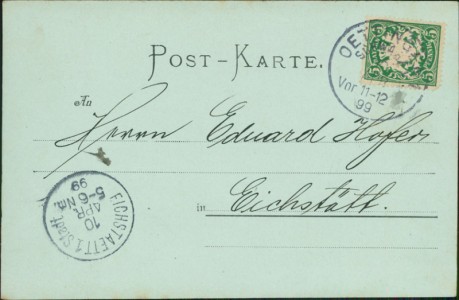 POST-KARTE.
Vor 11-12
99
An
Herrn Eduard Hofer
in
Eichstätt.
EICHSTAETT 1 Stadt
10
APR.
5-6 Nm.
99